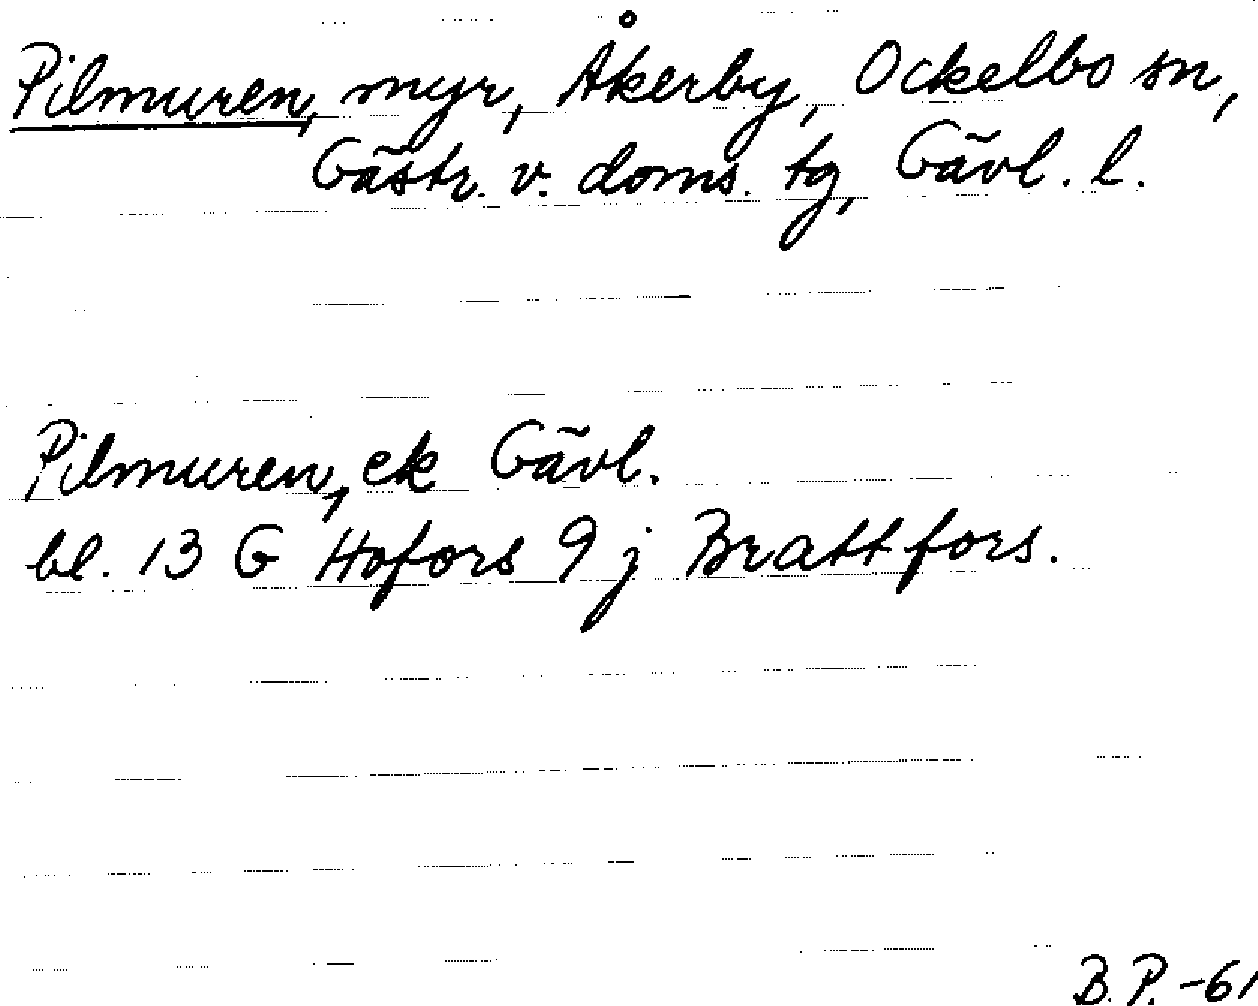 Pilmuren, myr, Åkerby, Ockelbo sn,
Gästr. v. doms. tg, Gävl. l.
Pilmuren, ek Gävl.
bl. 13 G Hofors 9 j Brattfors.
B. P. -61